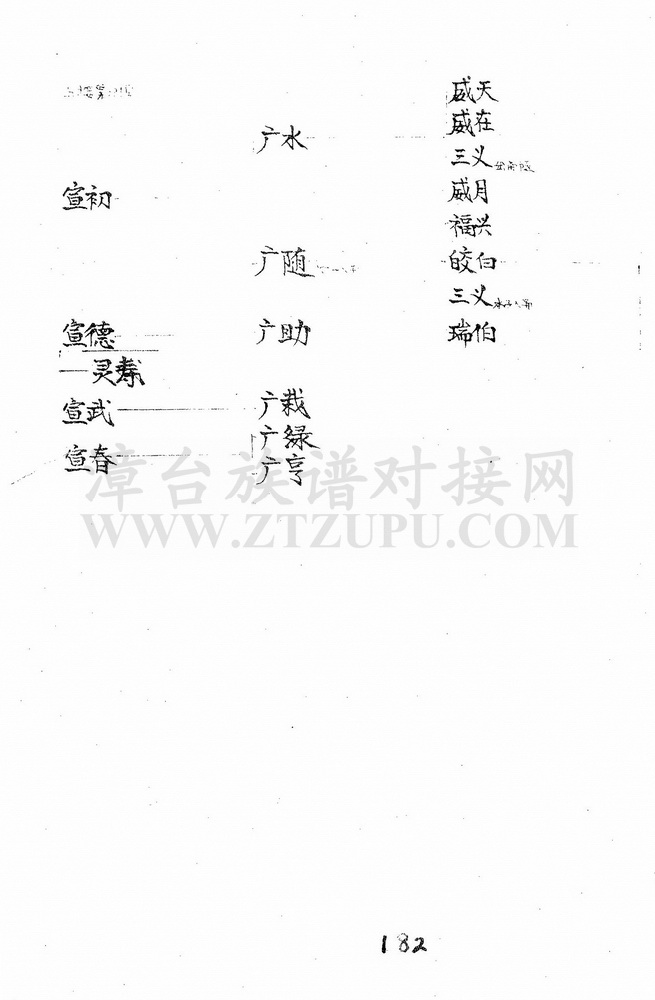 威天
威在
广水
三义
宣初
威月
福兴
广随
皎白
三义
宣德
广助
瑞伯
灵寿
宣武
广栽
广绿
宣春
广亨
漳台族谱对接网
WWW.ZTZUPU.COM
182